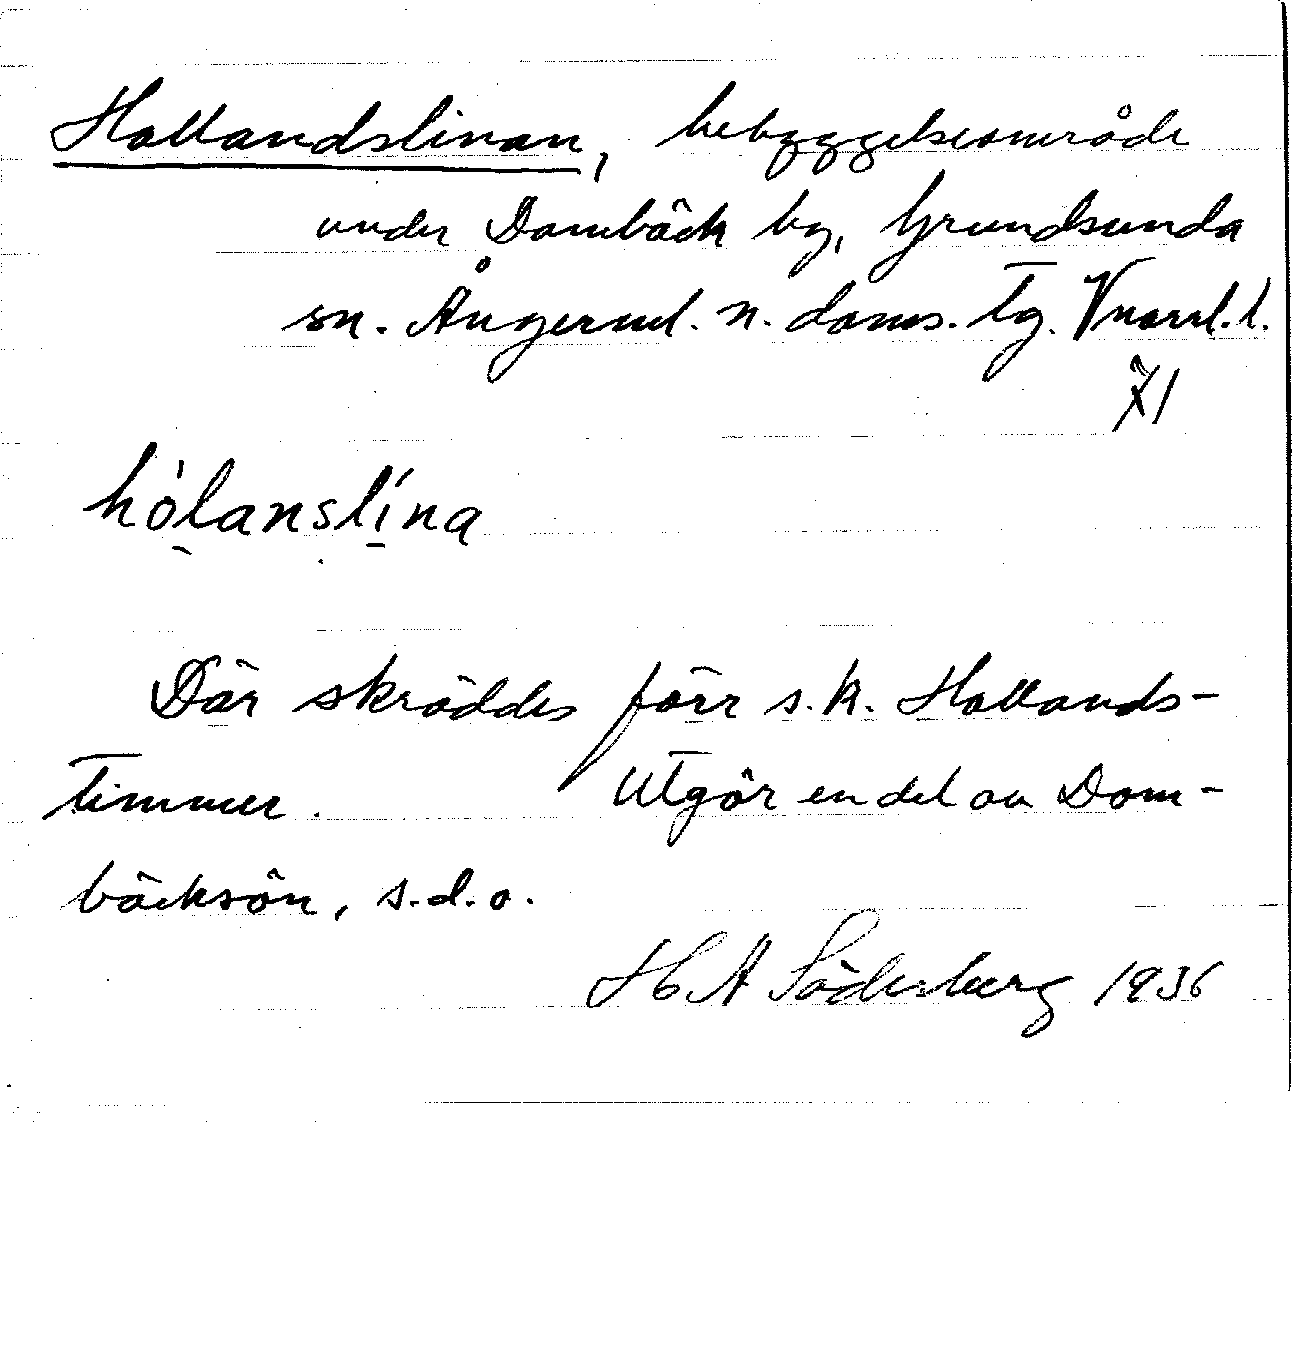 Hollandslinan, bebyggelseområde
under Dombäck by, Grundsunda
sn. Ångerml. n. doms. tg. Vnorrl. l.
71
hòlanslína
Där skräddes förr s.k. Hollands-
timmer. Utgör en del av Dom-
bäcksön, s.d.o.
H A Söderberg 1936